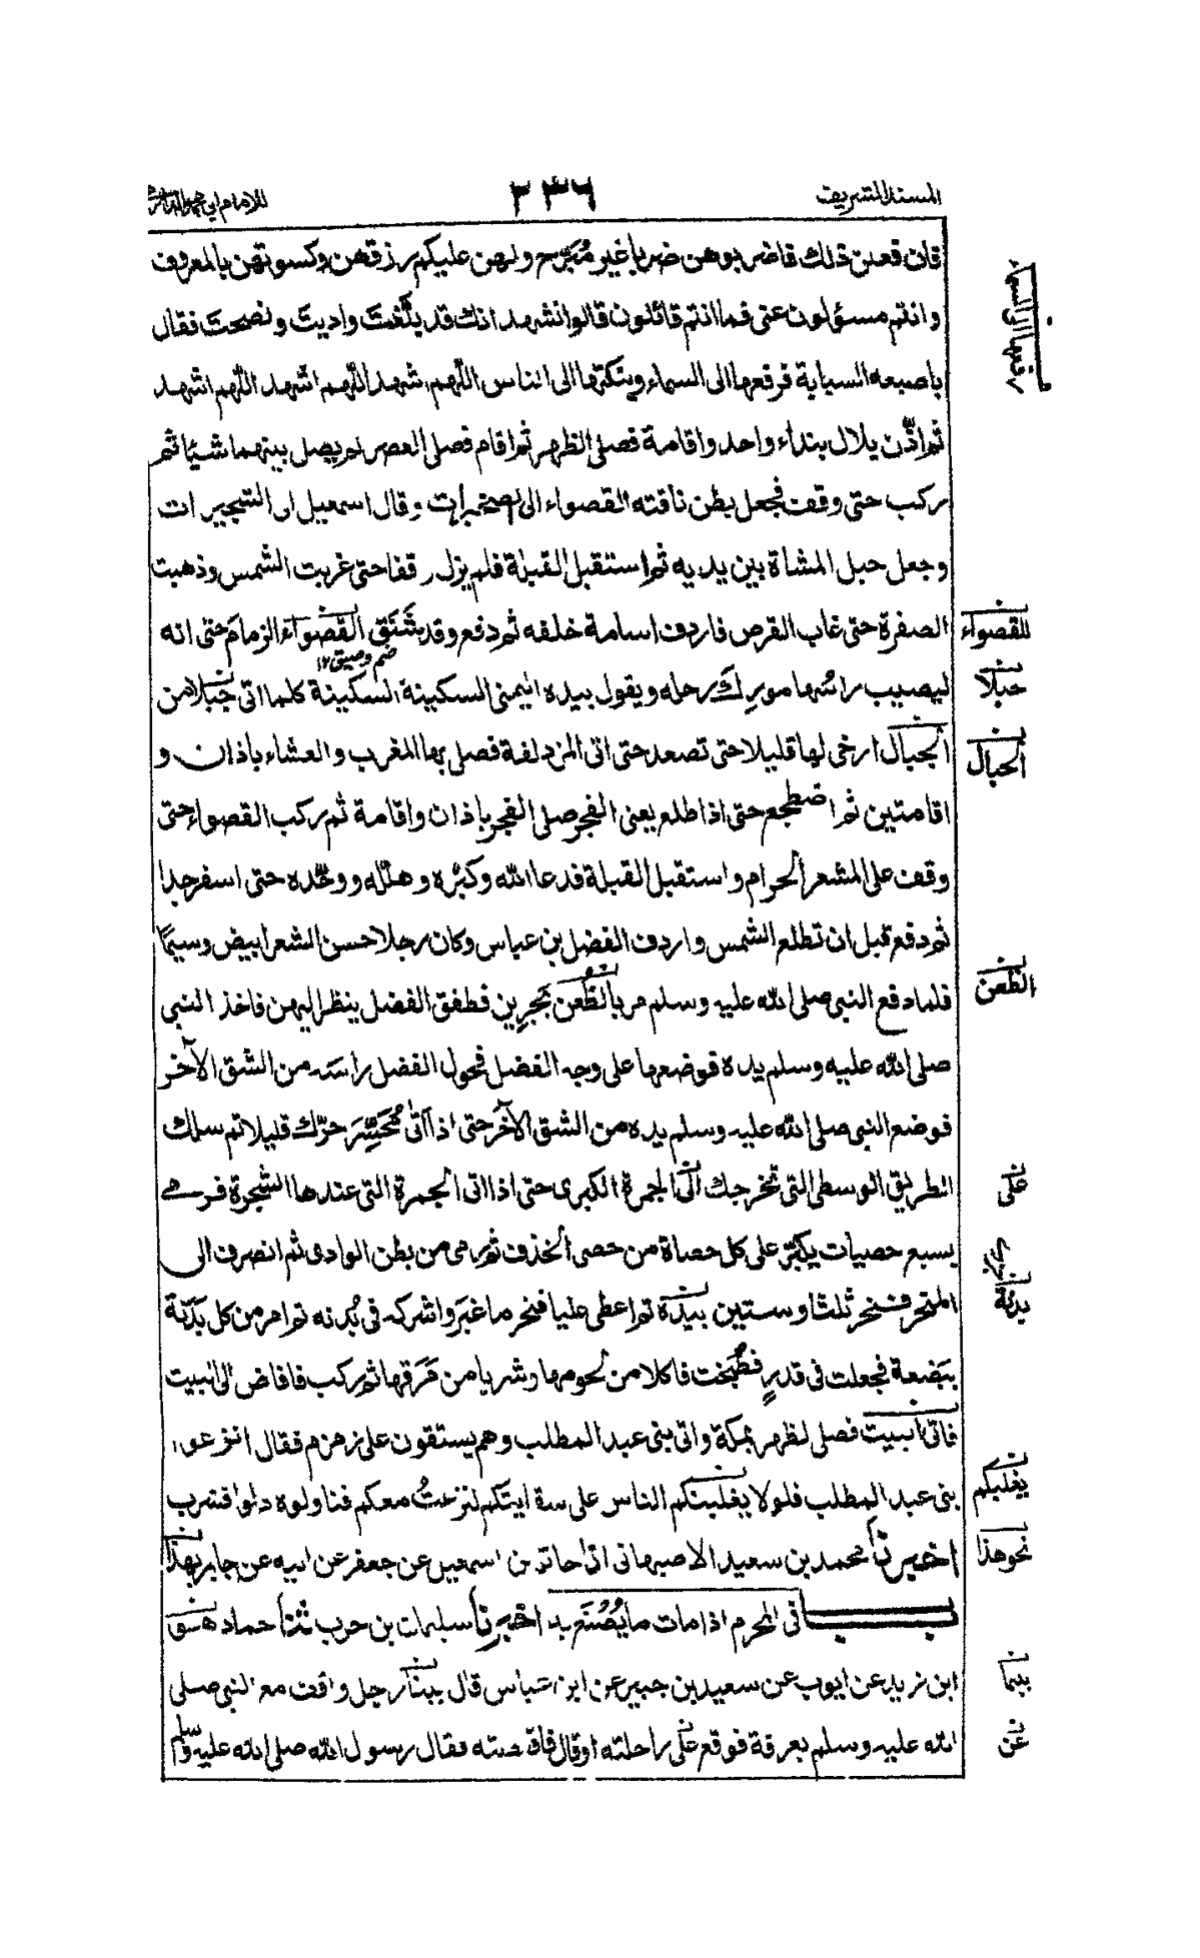 المسند الشريف
٢٣٦
للامام ابي محمد الدارمي
فان فعلن ذلك فاضربوهن ضربا غير مُبَرِّح ولهن عليكم رزقهن وكسوتهن بالمعروف
وانتم مسؤلون عنى فما انتم قائلون قالوا نشهد انك قد بلّغت واديت ونصحت فقال
باصبعه السبابة فرفعها الى السماء وينكتها الى الناس اللّهم اشهد اللّهم اشهد اللّهم اشهد
ثم اذّن بلال بنداء واحد واقامة فصلى الظهر ثم اقام فصلى العصر لم يصل بينهما شيئا ثم
ركب حتى وقف فجعل بطن ناقته القصواء الى الصخيرات وقال اسمعيل الى الشجيرات
وجعل حبل المشاة بين يديه ثم استقبل القبلة فلم يزل واقفا حتى غربت الشمس وذهبت
الصفرة حتى غاب القرص فاردف اسامة خلفه ثم دفع وقد شَنَقَ القصواء الزمامَ حتى انه
ضم وضيق ١٢
ليصيب راسُها مورِك رحله ويقول بيده اليمنى السكينة السكينة كلما اتى جبلا من
الجبال ارخى لها قليلا حتى تصعد حتى اتى المزدلفة فصلى بها المغرب والعشاء باذان و
اقامتين ثم اضطجع حتى اذا طلع يعنى الفجر صلى الفجر باذان واقامة ثم ركب القصواء حتى
وقف على المشعر الحرام واستقبل القبلة فدعا الله وكبّره وهلّله ووحّده حتى اسفر جدا
ثم دفع قبل ان تطلع الشمس واردف الفضل بن عباس وكان رجلا حسن الشعر ابيض وسيمًا
فلما دفع النبى صلى الله عليه وسلم مر بالظُعن يجرين فطفق الفضل ينظر اليهن فاخذ النبى
صلى الله عليه وسلم يده فوضعها على وجه الفضل فحول الفضل راسه من الشق الآخر
فوضع النبى صلى الله عليه وسلم يده من الشق الآخر حتى اذا اتى مُحَسِّرَ حرّك قليلا ثم سلك
الطريق الوسطى التى تخرجك الى الجمرة الكبرى حتى اذا اتى الجمرة التى عندها الشجرة فرمى
بسبع حصيات يكبّر على كل حصاة من حصى الخذف ثم رمى من بطن الوادى ثم انصرف الى
المنحر فنحر ثلثا وستين بيده ثم اعطى عليا فنحر ما غبَر واشركه فى بُدنه ثم امر من كل بَدَنة
ببَضعة فجعلت فى قدرٍ فطُبخت فاكلا من لحومها وشربا من مَرَقها ثم ركب فافاض الى البيت
فاتى البيت فصلى الظهر بمكة واتى بنى عبد المطلب وهم يستقون على زمزم فقال انزعوا
بنى عبد المطلب فلولا يغلبنكم الناس على سقايتكم لنزعتُ معكم فناولوه دلوا فشرب
اخبرنا محمد بن سعيد الاصبهانى انا حاتم بن اسمعيل عن جعفر عن ابيه عن جابر بهذا
باب فى المحرم اذا مات ما يُصْنَع به اخبرنا سليمان بن حرب ثنا حماد هو
ابن زيد عن ايوب عن سعيد بن جبير عن ابن عباس قال بينا رجل واقف مع النبى صلى
الله عليه وسلم بعرفة فوقع على راحلته او قال فاقعصته فقال رسول الله صلى الله عليه وسلم
رفعها الى السماء
للقصواء
حبلا
الحبال
الظعن
على
بدنة
يغلبكم
نحو هذا
بينما
عن